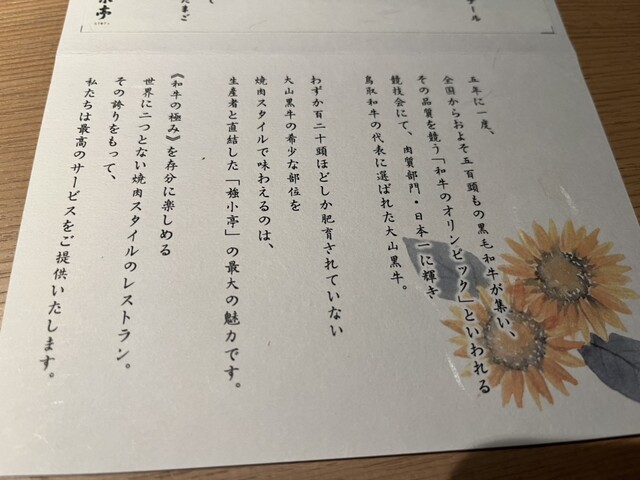 五年に一度、
全国からおよそ五百頭もの黒毛和牛が集い、
その品質を競う「和牛のオリンピック」といわれる
競技会にて、肉質部門・日本一に輝き
鳥取和牛の代表に選ばれた大山黒牛。
わずか百二十頭ほどしか肥育されていない
大山黒牛の希少な部位を
焼肉スタイルで味わえるのは、
生産者と直結した「強小亭」の最大の魅力です。
《和牛の極み》を存分に楽しめる
世界に二つとない焼肉スタイルのレストラン。
その誇りをもって、
私たちは最高のサービスをご提供いたします。
テール
たまご
亭